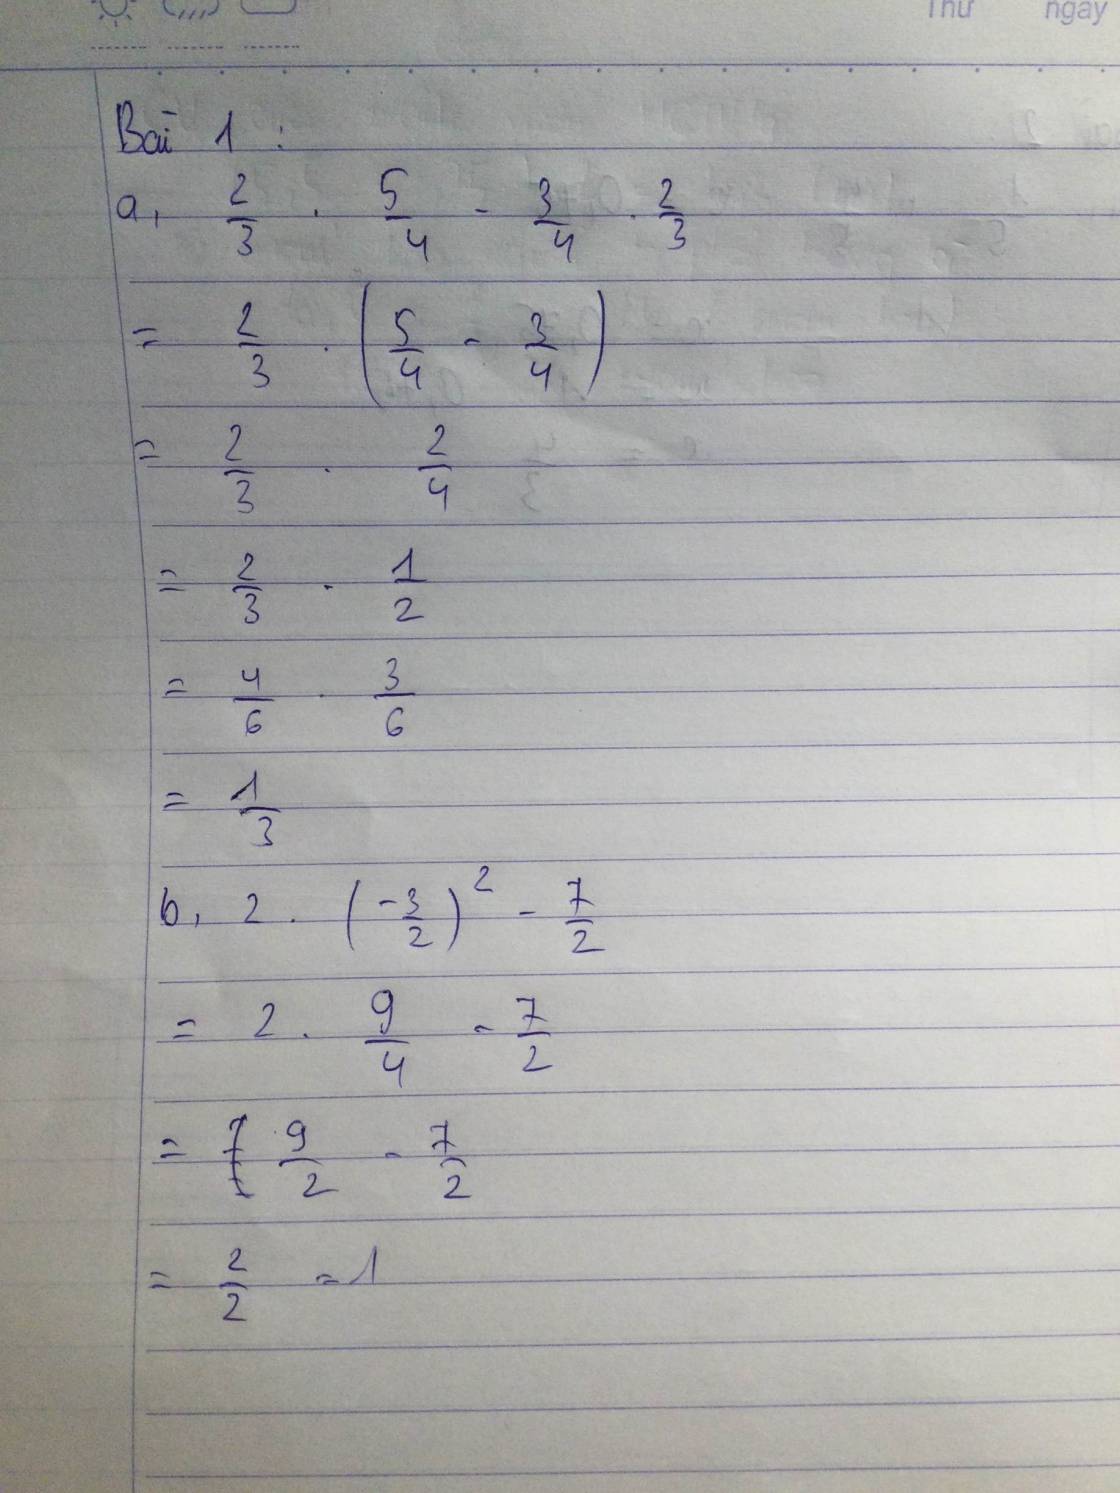 Thứ ngày
Bài 1 :
a, 2/3 . 5/4 - 3/4 . 2/3
= 2/3 . (5/4 - 3/4)
= 2/3 . 2/4
= 2/3 . 1/2
= 4/6 . 3/6
= 1/3
b, 2 . (-3/2)² - 7/2
= 2 . 9/4 - 7/2
= 9/2 - 7/2
= 2/2 = 1